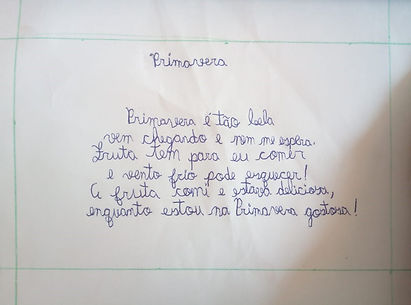 Primavera
Primavera é tão bela
vem chegando e nem me espera.
Fruta tem para eu comer
e vento frio pode esquecer!
A fruta comi e estava deliciosa,
enquanto estou na Primavera gostosa!